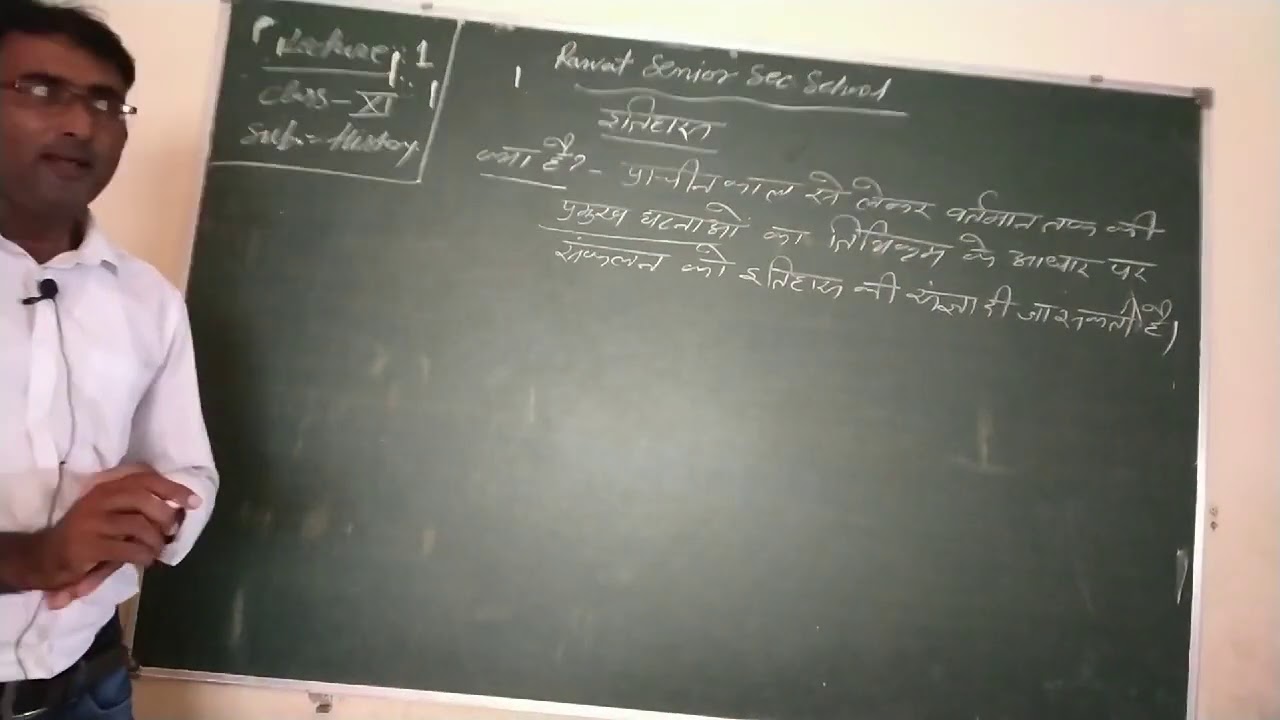 Lecture: 1
Class - XI
Sub:- History
Rawat Senior Sec School
इतिहास
क्या है? - प्राचीन काल से लेकर वर्तमान तक की
प्रमुख घटनाओं का तिथिक्रम के आधार पर
संकलन को इतिहास की संज्ञा दी जा सकती है।